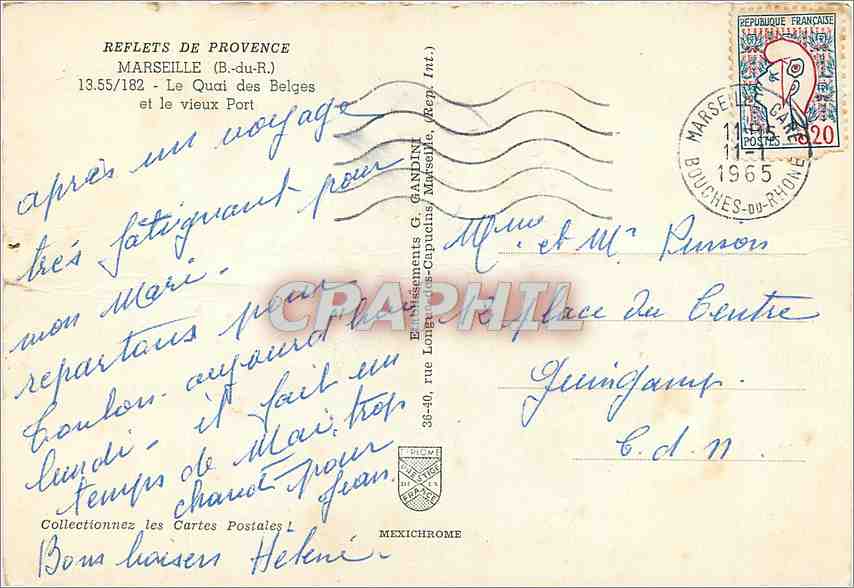 REFLETS DE PROVENCE
MARSEILLE (B.-du-R.)
13.55/182 - Le Quai des Belges
et le vieux Port
après un voyage
très fatiguant pour
mon Mari -
repartons pour
Toulon - aujourd'hui
lundi - il fait un
temps de Mai, trop
chaud pour
Jean.
Collectionnez les Cartes Postales !
Bons baisers Hélène -
Etablissements G. GANDINI
36-40, rue Longue-des-Capucins, Marseille, (Rep. Int.)
DIPLOME
PRESTIGE
DE LA
FRANCE
MEXICHROME
REPUBLIQUE FRANÇAISE
POSTES 0,20
MARSEILLE GARE
11H15
11-1
1965
BOUCHES-DU-RHONE
Mme et Mr
place du Centre
Guingamp.
C.d.N.
CRAPHIL